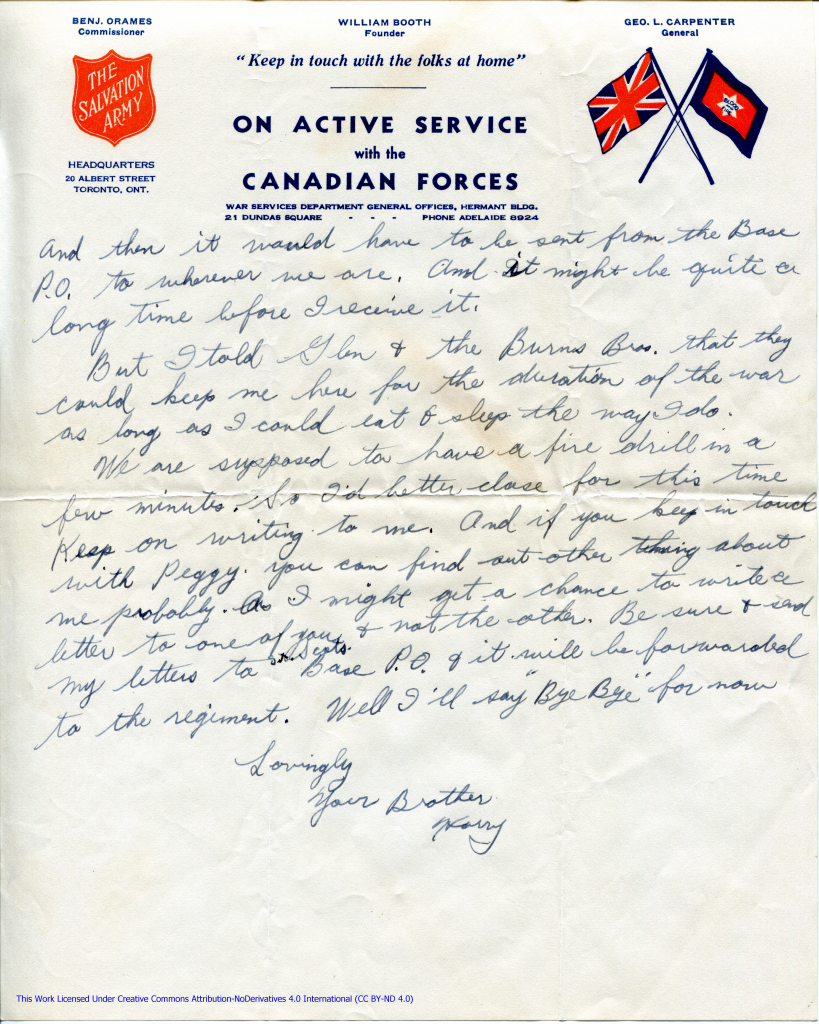 BENJ. ORAMES
Commissioner
WILLIAM BOOTH
Founder
GEO. L. CARPENTER
General
"Keep in touch with the folks at home"
THE
SALVATION
ARMY
BLOOD
AND
FIRE
ON ACTIVE SERVICE
with the
CANADIAN FORCES
HEADQUARTERS
20 ALBERT STREET
TORONTO, ONT.
WAR SERVICES DEPARTMENT GENERAL OFFICES, HERMANT BLDG.
21 DUNDAS SQUARE - - - PHONE ADELAIDE 8924
And then it would have to be sent from the Base
P.O. to wherever we are. And it might be quite a
long time before I receive it.
But I told Glen & the Burns Bros. that they
could keep me here for the duration of the war
as long as I could eat & sleep the way I do.
We are supposed to have a fire drill in a
few minutes. So I'd better close for this time
Keep on writing to me. And if you keep in touch
with Peggy. you can find out other thing about
me probably. As I might get a chance to write a
letter to one of you & not the other. Be sure & send
my letters to Scots. Base P.O. & it will be forwarded
to the regiment. Well I'll say "Bye Bye" for now
Lovingly
Your Brother
Harry
This Work Licensed Under Creative Commons Attribution-NoDerivatives 4.0 International (CC BY-ND 4.0)